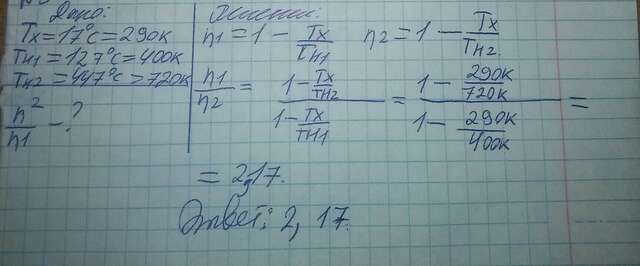 Дано:
Tx=17°c=290к
Tн1=127°c=400к
Tн2=447°c=720к
n2/n1-?
Решение:
n1=1-Tx/Tн1 n2=1-Tx/Tн2
n1/n2=(1-Tx/Tн2)/(1-Tx/Tн1)=(1-290к/720к)/(1-290к/400к)=
=2,17.
Ответ: 2,17.